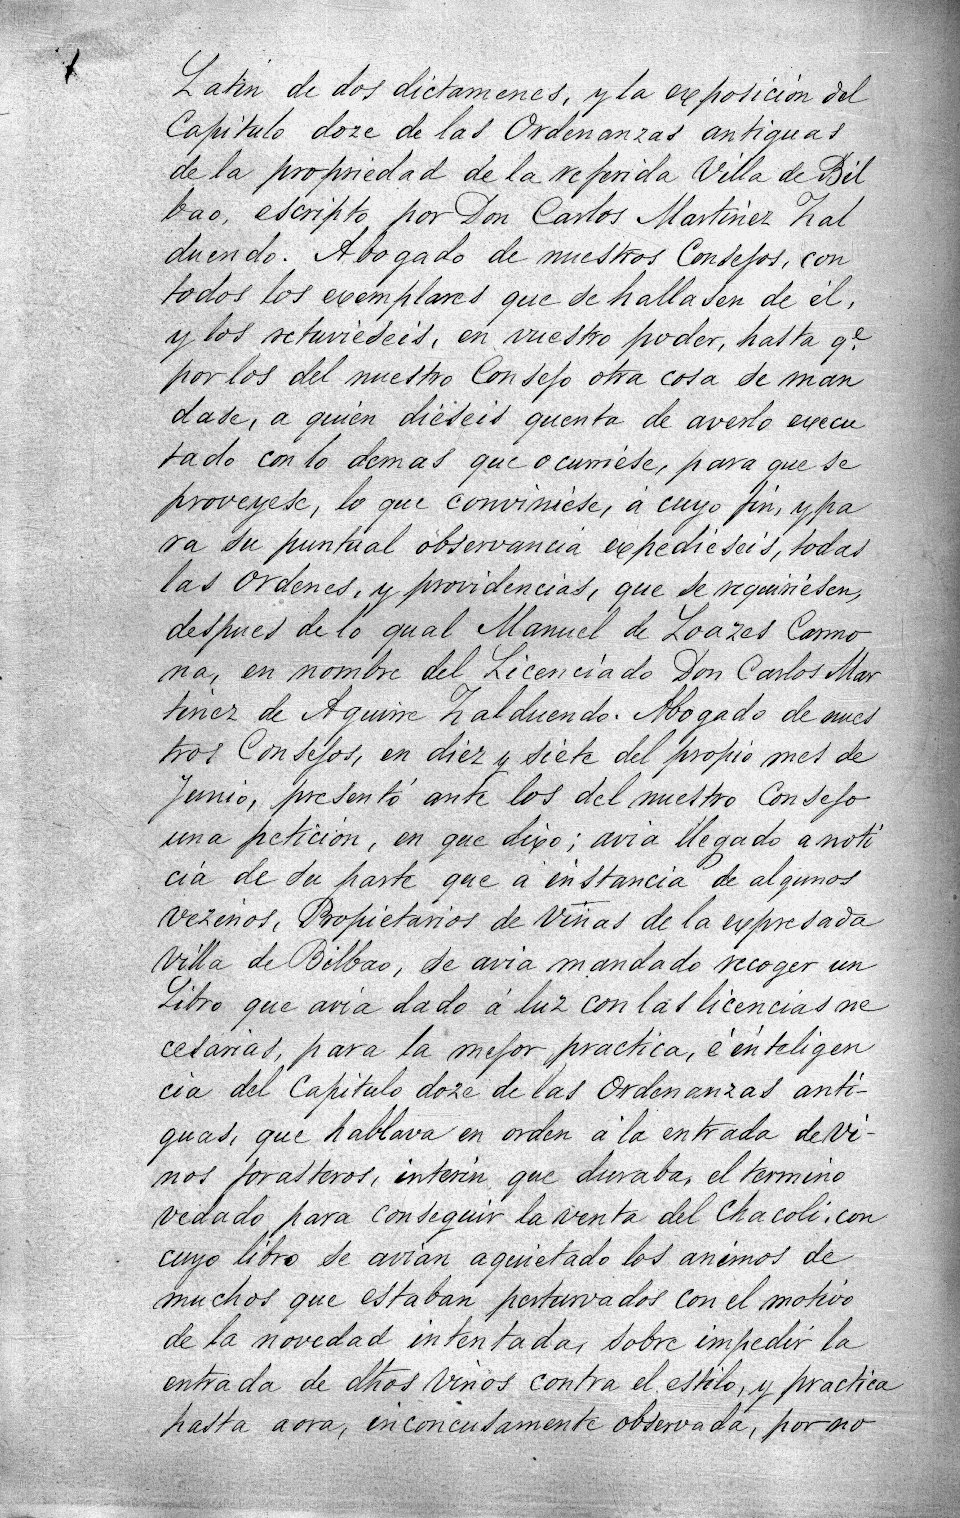 Latin de dos dictamenes, y la exposición del
Capitulo doze de las Ordenanzas antiguas
de la propriedad de la referida Villa de Bil
bao, escripto por Don Carlos Martinez Zal
duendo. Abogado de nuestros Consejos, con
todos los exemplares que se hallasen de él,
y los retuvieseis, en vuestro poder, hasta q.e
por los del nuestro Consejo otra cosa se man
dase, a quien dieseis quenta de averlo execu
tado con lo demas que ocurriese, para que se
proveyese, lo que conviniese, á cuyo fin, y pa
ra su puntual observancia expedieseis, todas
las ordenes, y providencias, que se requiriesen,
despues de lo qual Manuel de Loazes Carmo
na, en nombre del Licenciado Don Carlos Mar
tinez de Aguirre Zalduendo. Abogado de nues
tros Consejos, en diez y siete del propio mes de
Junio, presentó ante los del nuestro Consejo
una petición, en que dixo; avia llegado a noti
cia de su parte que á instancia de algunos
vezinos, Propietarios de Viñas de la expresada
Villa de Bilbao, se avia mandado recoger un
Libro que avia dado á luz con las licencias ne
cesarias, para la mejor practica, é inteligen
cia del Capitulo doze de las Ordenanzas anti-
guas, que hablava en orden á la entrada de vi-
nos forasteros, interin que duraba, el termino
vedado para conseguir la venta del Chacoli, con
cuyo libro se avian aquietado los animos de
muchos que estaban perturvados con el motivo
de la novedad intentada, sobre impedir la
entrada de dhos vinos contra el estilo, y practica
hasta aora, inconcusamente observada, por no